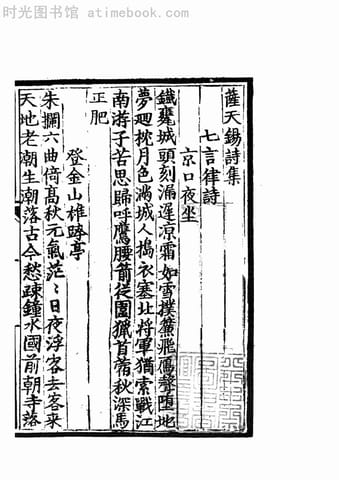 时光图书馆 atimebook.com
薩天錫詩集
七言律詩
京口夜坐
鐵甕城頭刻漏遲凉霜如雪撲簾飛鴈聲墮地
夢廻枕月色滿城人搗衣塞北將軍猶索戰江
南游子苦思歸呼鷹腰箭從圍獵首蓿秋深馬
正肥
登金山 亭
朱攔六曲倚髙秋元氣茫〻日夜浮客去客來
天地老潮生潮落古今愁疎鐘水國前朝寺落